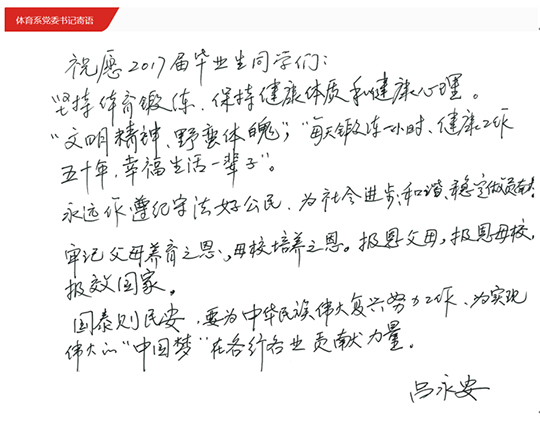 体育系党委书记寄语
祝愿2017届毕业生同学们：
“坚持体育锻炼、保持健康体质和健康心理。
“文明精神、野蛮体魄”；“每天锻炼一小时、健康工作
五十年，幸福生活一辈子”。
永远作遵纪守法好公民，为社会进步、和谐、稳定做贡献！
牢记父母养育之恩、母校培养之恩。报恩父母，报恩母校，
报效国家。
国泰则民安，要为中华民族伟大复兴努力工作，为实现
伟大的“中国梦”在各行各业贡献力量。
吕永安